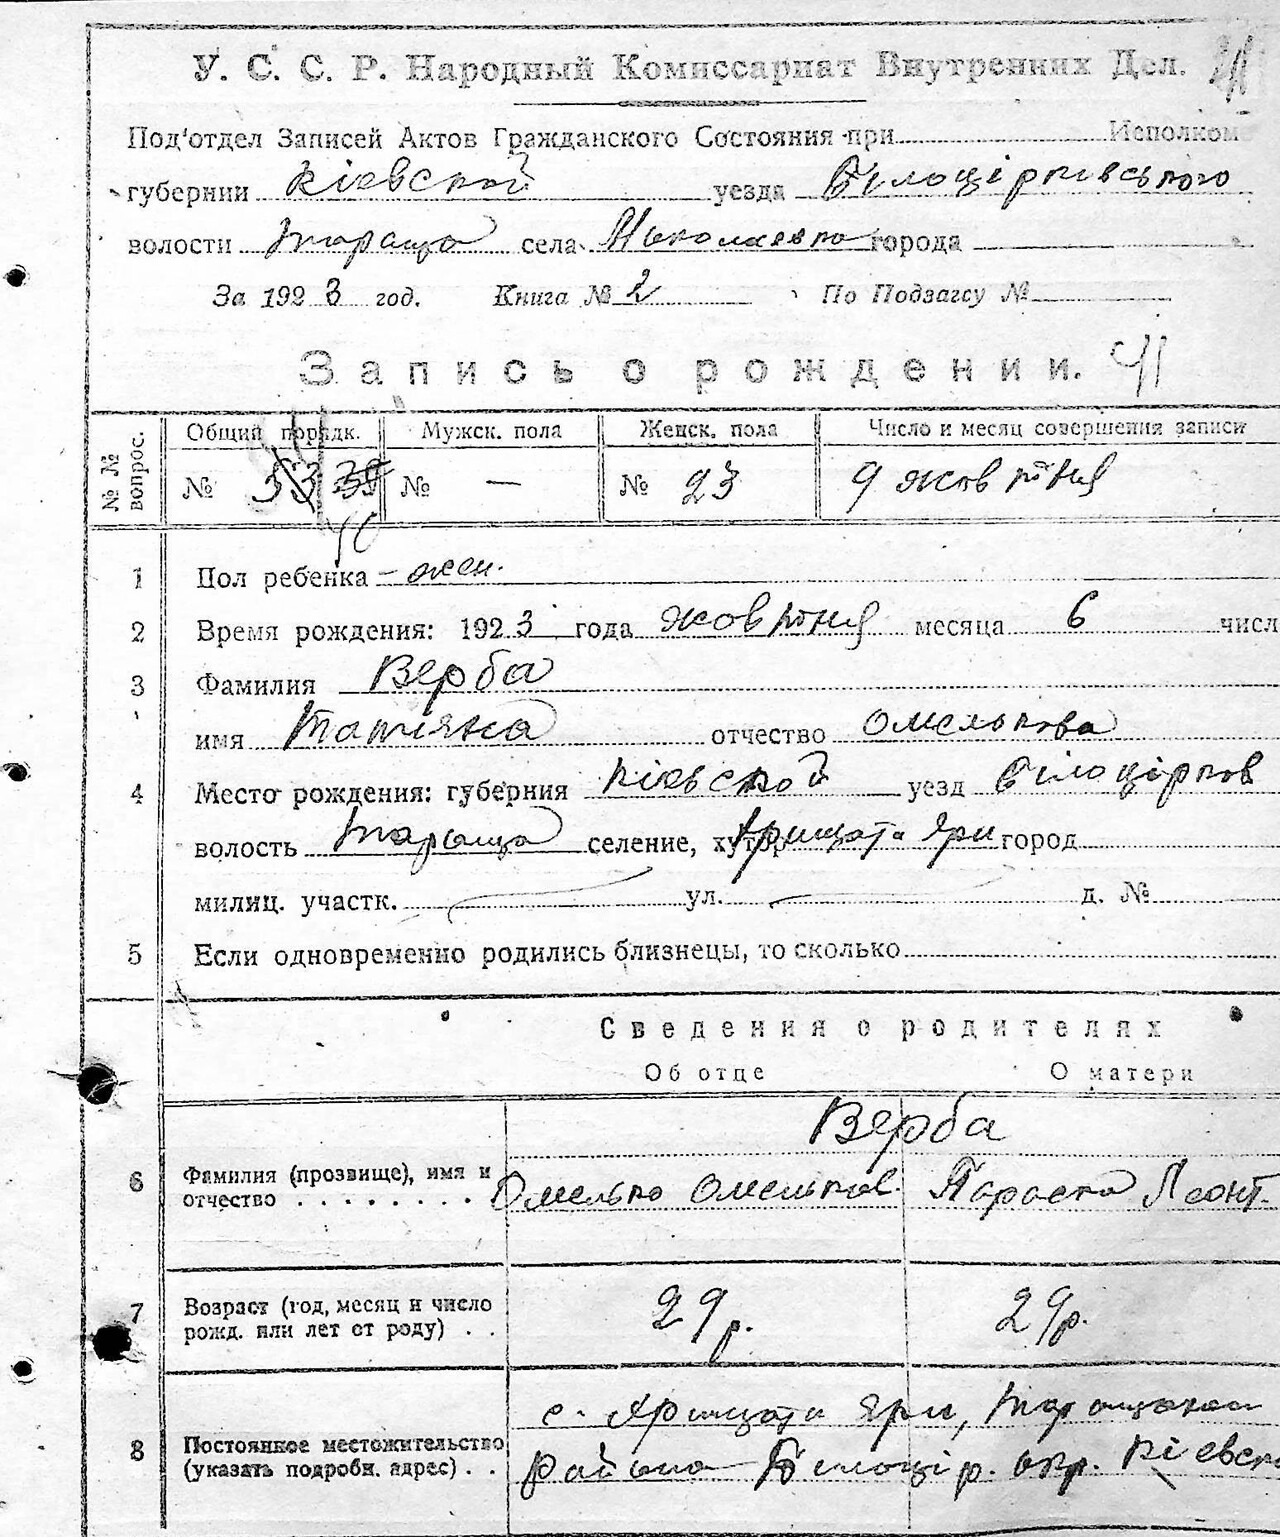 У. С. С. Р. Народный Комиссариат Внутренних Дел.
Под'отдел Записей Актов Гражданского Состояния при Исполком
губернии Кіевской уезда Білоцірківського
волости Тараща села Николаевка города
За 1923 год. Книга № 2 По Подзагсу №
Запись о рождении. 41
№ № вопрос. Общий порядк. Мужск. пола Женск. пола Число и месяц совершения записи
№ 53 39 № — № 23 9 жовтня
40
1 Пол ребенка – жен.
2 Время рождения: 1923 года жовтня месяца 6 числ
3 Фамилия Верба
имя Татіяна отчество Омелькова
4 Место рождения: губерния Кіевской уезд Білоцірков
волость Тараща селение, хутор Яри город
милиц. участк. ул. д. №
5 Если одновременно родились близнецы, то сколько
Сведения о родителях
Об отце О матери
Верба
6 Фамилия (прозвище), имя и
отчество . . . . . . . . Омелько Омельков. Параска Леонт.
7 Возраст (год, месяц и число
рожд. или лет от роду) . . 29 р. 29 р.
с. Яри, Таращанск
8 Постоянное местожительство
(указать подробн. адрес) . . района Білоцір. окр. Кіевск